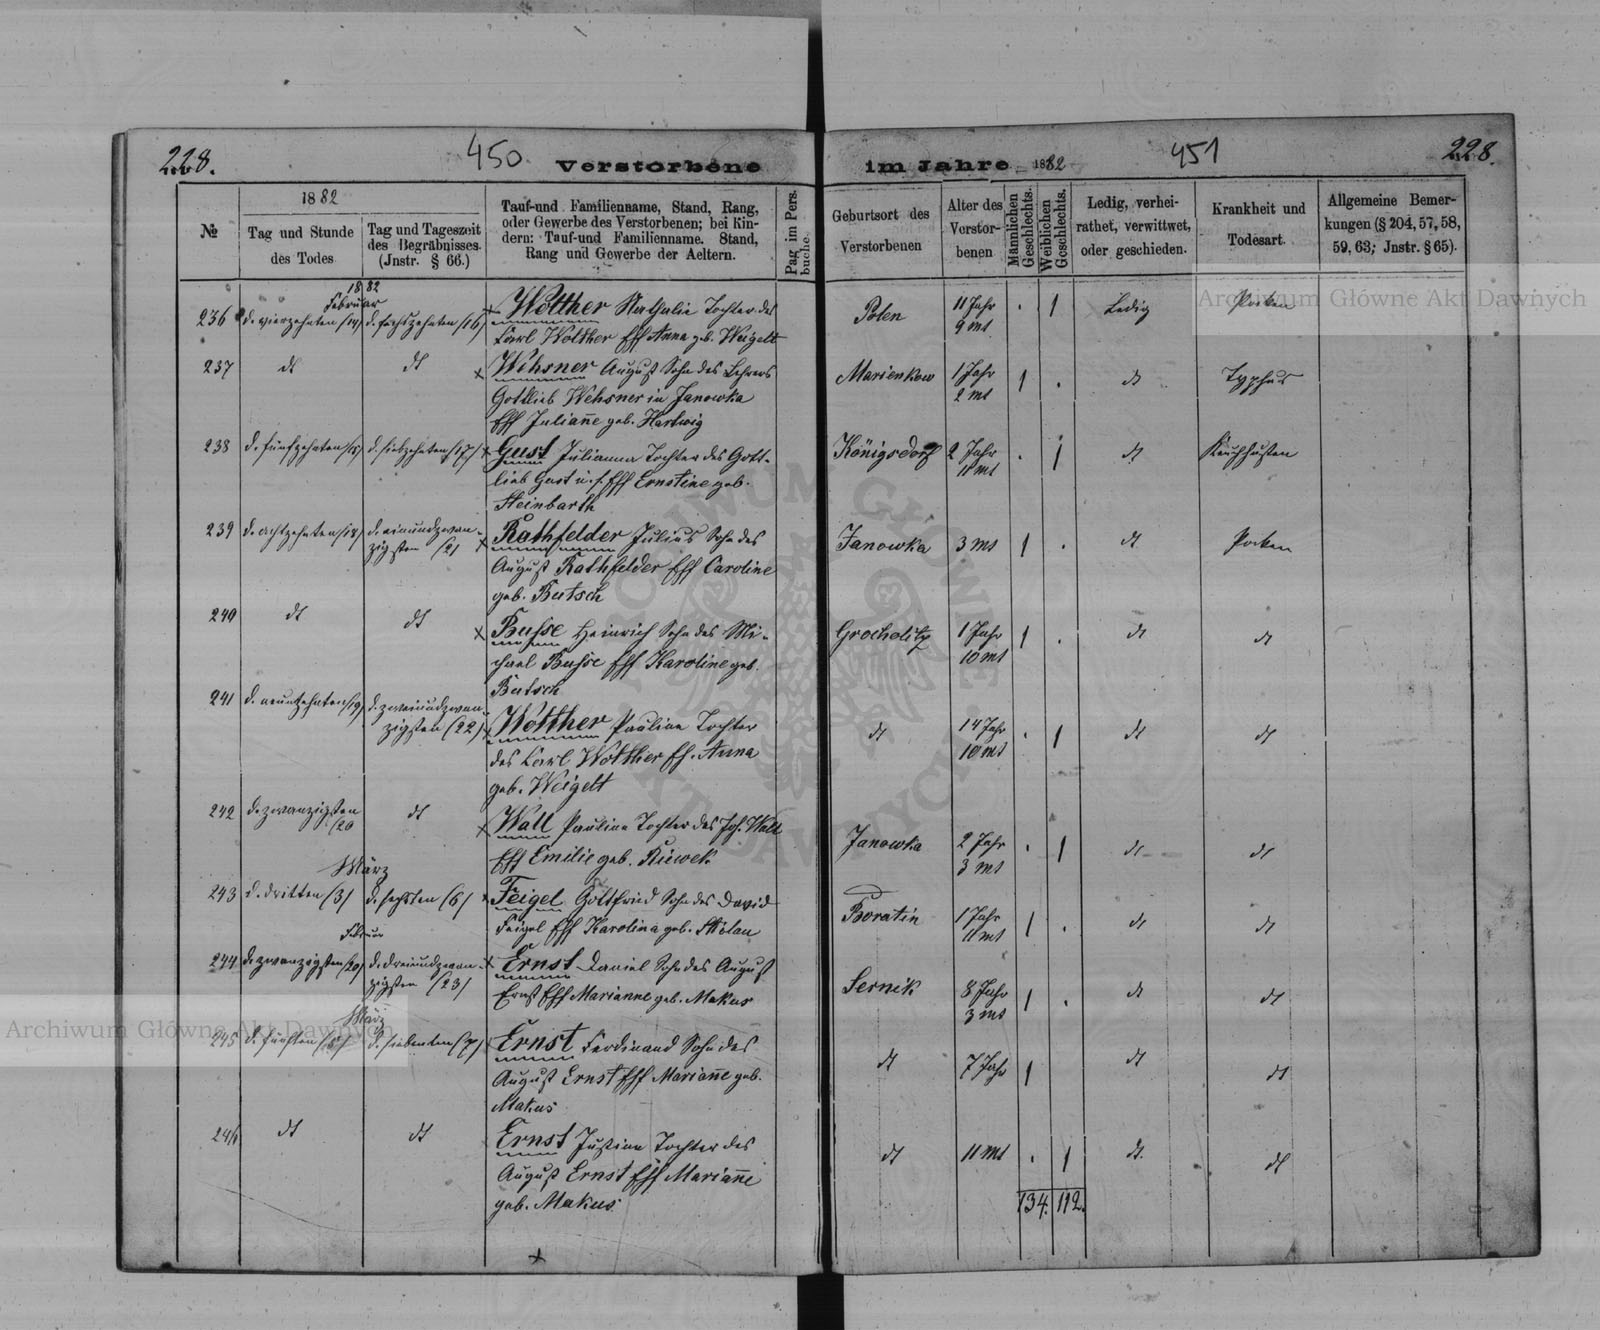 228.
450
Verstorbene
im Jahre 1882
451
228.
№
1882
Tag und Stunde
des Todes
Tag und Tageszeit
des Begräbnisses.
(Jnstr. § 66.)
Tauf-und Familienname, Stand, Rang,
oder Gewerbe des Verstorbenen; bei Kin-
dern: Tauf-und Familienname. Stand,
Rang und Gewerbe der Aeltern.
Pag im Pers.
buche.
Geburtsort des
Verstorbenen
Alter des
Verstor-
benen
Männlichen
Geschlechts.
Weiblichen
Geschlechts.
Ledig, verhei-
rathet, verwittwet,
oder geschieden.
Krankheit und
Todesart.
Allgemeine Bemer-
kungen (§ 204, 57, 58,
59, 63; Jnstr. § 65).
1882
Februar
236 d. vierzehnten /14/ d. sechszehnten /16/ Wolther Nathalie Tochter des
Carl Wolther Eff Anna geb. Weigelt
Polen 11 Jahr 9 mt . 1 Ledig Pocken
237 dt dt Wehsner August Sohn des Lehrers
Gottlieb Wehsner in Janowka
Eff Julianne geb. Hartwig
Marienkow 1 Jahr 2 mt 1 . dt Typhus
238 d. fünfzehnten /15/ d. siebzehnten /17/ Gust Julianna Tochter des Gott-
lieb Gust u. s. Eff Ernstine geb.
Steinbarth
Königsdorf 2 Jahr 11 mt . 1 dt Keuchhusten
239 d. achtzehnten /18/ d. einundzwan-
zigsten /21 Rathfelder Julius Sohn des
August Rathfelder Eff Caroline
geb. Butsch
Janowka 3 mt 1 . dt Pocken
240 dt dt Busse Heinrich Sohn des Mi-
chael Busse Eff Karoline geb.
Butsch
Grocholitz 1 Jahr 10 mt 1 . dt dt
241 d. neunzehnten /19/ d. zweiundzwan-
zigsten /22/ Wolther Pauline Tochter
des Carl Wolther Eh. Anna
geb. Weigelt
dt 14 Jahr 10 mt . 1 dt dt
242 d. zwanzigsten
/20 dt Wall Pauline Tochter des Joh. Wall
Eff Emilie geb.
Janowka 2 Jahr 3 mt . 1 dt dt
März
243 d. dritten /3/ d. sechsten /6/ Feigel Gottfried Sohn des David
Feigel Eff Karolina geb.
Boratin 1 Jahr 11 mt 1 . dt dt
Februar
244 d. zwanzigsten /20/ d. dreiundzwan-
zigsten /23/ Ernst Daniel Sohn des August
Ernst Eff Marianne geb. Makus
Sernik 8 Jahr 3 mt 1 . dt dt
März
245 d. fünften /5/ d. siebenten /7/ Ernst Ferdinand Sohn des
August Ernst Eff Marianne geb.
Makus
dt 7 Jahr 1 dt dt
246 dt dt Ernst Justine Tochter des
August Ernst Eff Marianne
geb. Makus
dt 11 mt . 1 dt. dt
134. 112.
Archiwum Główne Akt Dawnych
Archiwum Główne Akt Dawnych
ARCHIWUM GŁÓWNE AKT DAWNYCH